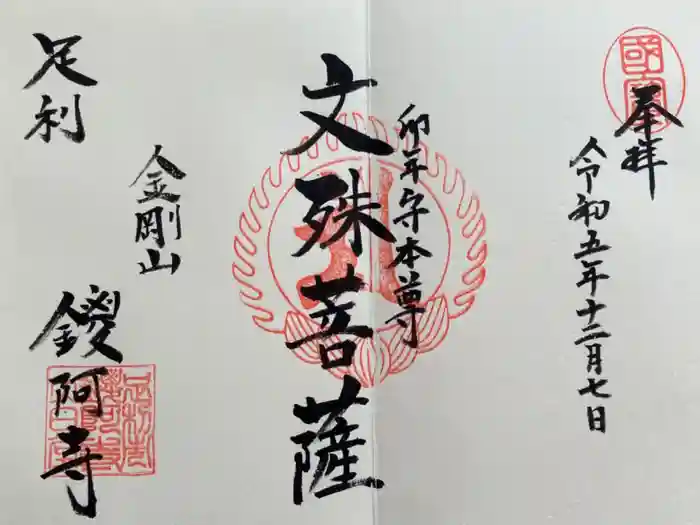 國寳
奉拝
令和五年十二月七日
卯年守本尊
文殊菩薩
足利
金剛山
鑁阿寺